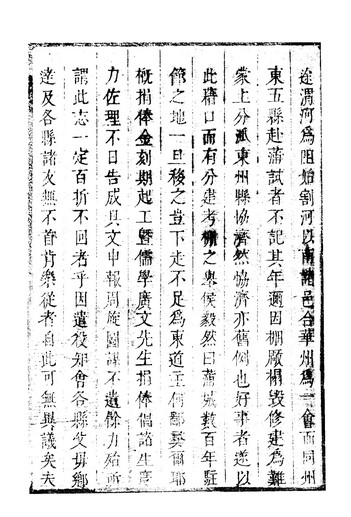 途渭河爲阻始割河以南諸邑合華州爲一會而同州
東五縣赴蒲試者不記其年邇因棚厰榻毀修建爲難
蒙上分派東州縣協濟然協濟亦舊例也好事者遂以
此藉口而有分建考棚之舉侯毅然曰蒲城數百年駐
節之地一旦移之豈下走不足爲東道主何鄙爾耶
概捐俸金刻期起工暨儒學廣文先生捐俸倡諸生
力佐理不日告成具文申報周旋圖謀不遺餘力殆所
謂此志一定百折不回者乎因遣役知會各縣父母鄉
達及各縣諸友無不首肯樂從者自此可無異議矣夫